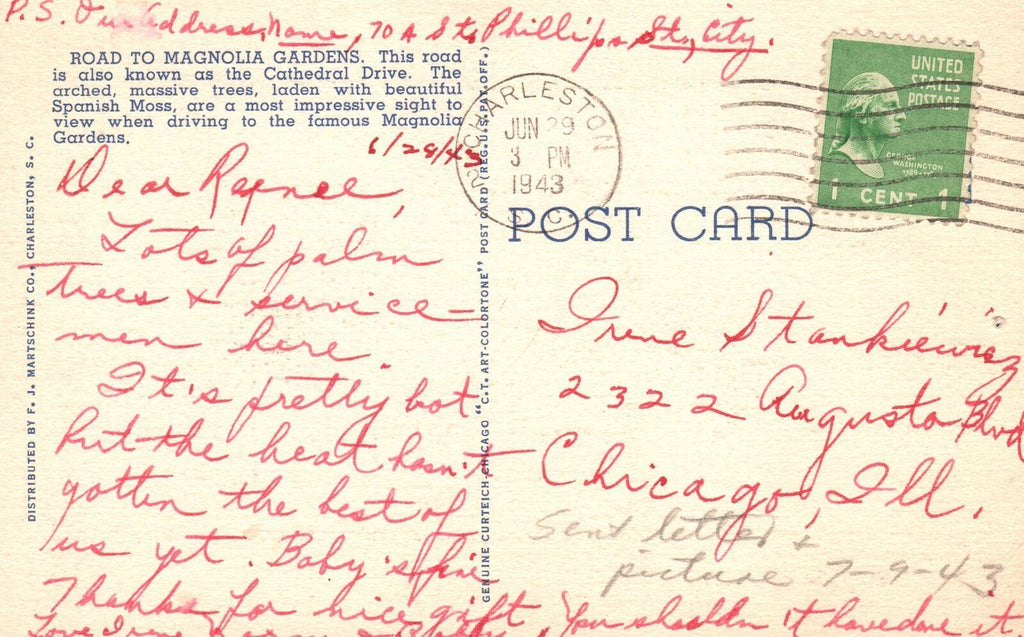 P.S. Our Address, Name, 70 A St. Phillips St., City.
ROAD TO MAGNOLIA GARDENS. This road
is also known as the Cathedral Drive. The
arched, massive trees, laden with beautiful
Spanish Moss, are a most impressive sight to
view when driving to the famous Magnolia
Gardens.
6/28/43
Dear
Lots of palm
trees & service-
men here.
It's pretty hot
but the heat hasn't
gotten the best of
us yet. Baby's fine
Thanks for nice gift. You shouldn't have done it
Love Irene
DISTRIBUTED BY F. J. MARTSCHINK CO., CHARLESTON, S. C.
GENUINE CURTEICH-CHICAGO "C.T. ART-COLORTONE" POST CARD (REG. U.S. PAT. OFF.)
CHARLESTON
2
JUN 29
3 PM
1943
S. C.
UNITED
STATES
POSTAGE
GEORGE
WASHINGTON
1 CENT 1
POST CARD
Irene Stankiewicz
2322 Augusta Blvd
Chicago, Ill.
Sent letter +
picture 7-9-43